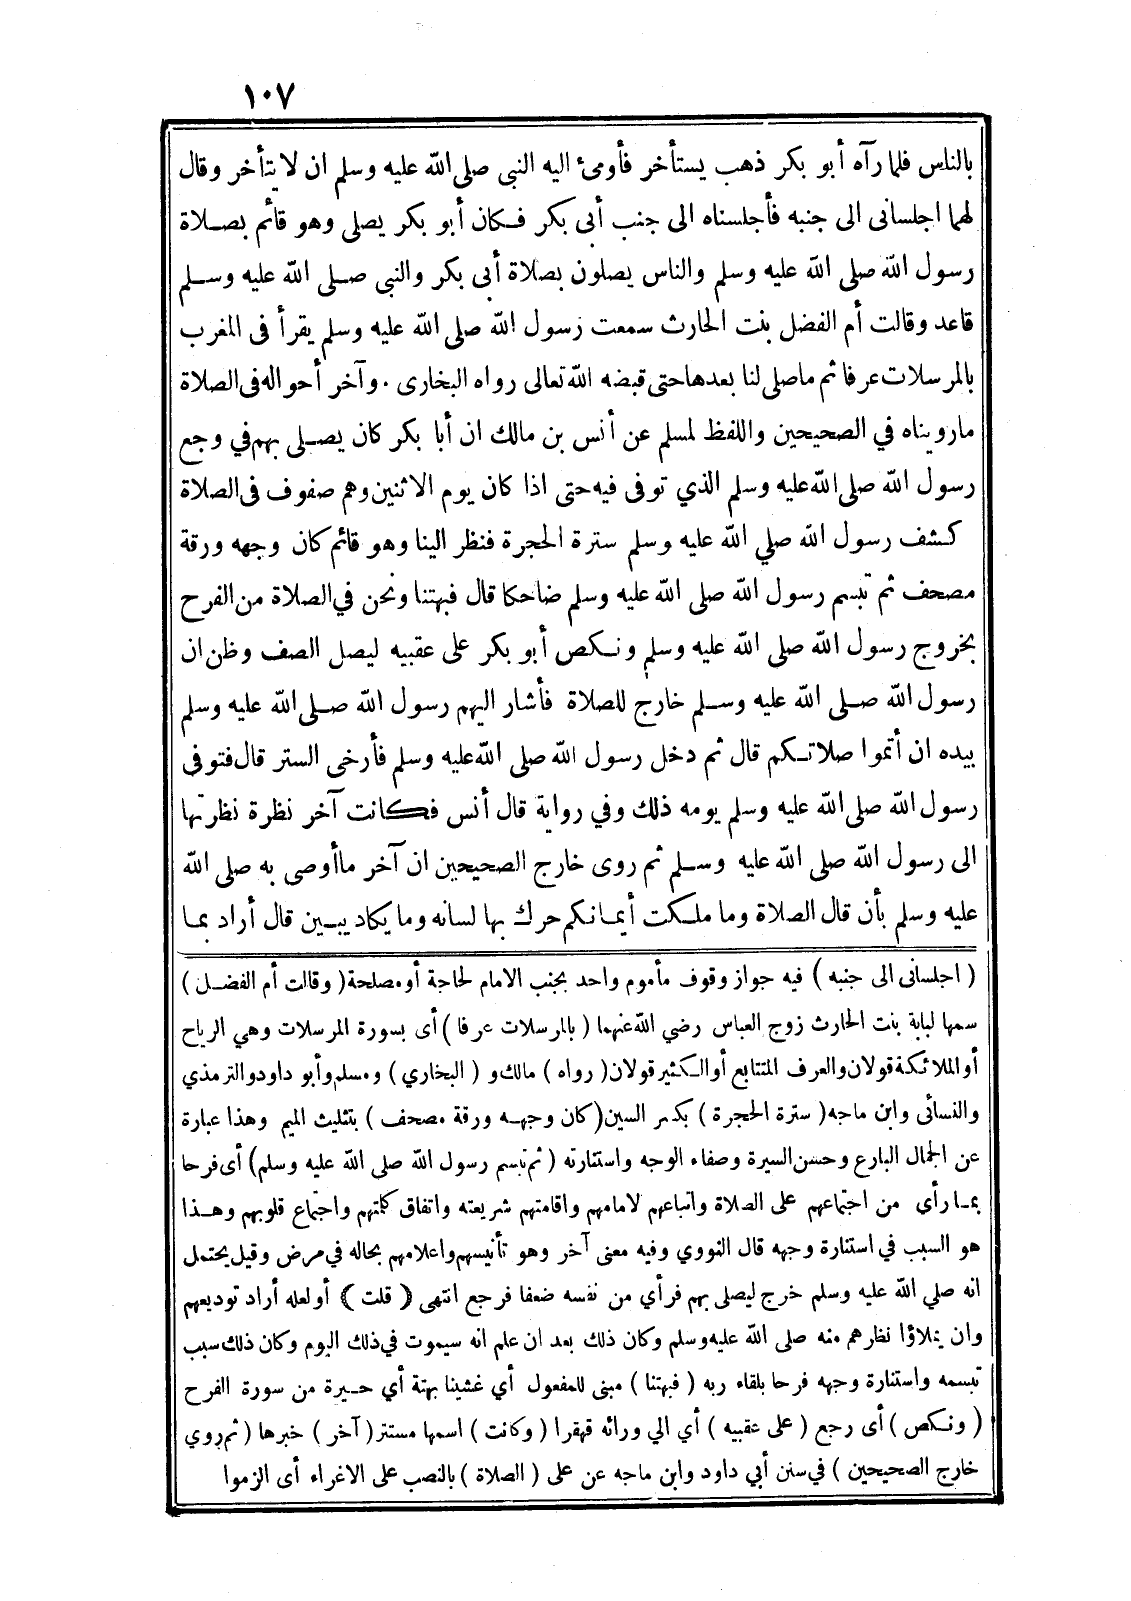 ١٠٧
بالناس فلما رآه أبو بكر ذهب يستأخر فأومئ اليه النبى صلى الله عليه وسلم ان لا يتأخر وقال
لهما اجلسانى الى جنبه فأجلسناه الى جنب أبى بكر فكان أبو بكر يصلى وهو قائم بصلاة
رسول الله صلى الله عليه وسلم والناس يصلون بصلاة أبى بكر والنبى صلى الله عليه وسلم
قاعد وقالت أم الفضل بنت الحارث سمعت رسول الله صلى الله عليه وسلم يقرأ فى المغرب
بالمرسلات عرفا ثم ماصلى لنا بعدها حتى قبضه الله تعالى رواه البخارى . وآخر أحواله فى الصلاة
مارويناه في الصحيحين واللفظ لمسلم عن أنس بن مالك ان أبا بكر كان يصلى بهم في وجع
رسول الله صلى الله عليه وسلم الذي توفى فيه حتى اذا كان يوم الاثنين وهم صفوف فى الصلاة
كشف رسول الله صلي الله عليه وسلم سترة الحجرة فنظر الينا وهو قائم كان وجهه ورقة
مصحف ثم تبسم رسول الله صلى الله عليه وسلم ضاحكا قال فبهتنا ونحن في الصلاة من الفرح
بخروج رسول الله صلى الله عليه وسلم ونكص أبو بكر على عقبيه ليصل الصف وظن ان
رسول الله صلى الله عليه وسلم خارج للصلاة فأشار اليهم رسول الله صلى الله عليه وسلم
بيده ان أتموا صلاتكم قال ثم دخل رسول الله صلى الله عليه وسلم فأرخى الستر قال فتوفى
رسول الله صلى الله عليه وسلم يومه ذلك وفي رواية قال أنس فكانت آخر نظرة نظرتها
الى رسول الله صلى الله عليه وسلم ثم روى خارج الصحيحين ان آخر ماأوصى به صلى الله
عليه وسلم بأن قال الصلاة وما ملكت أيمانكم حرك بها لسانه وما يكاد يبين قال أراد بما
( اجلسانى الى جنبه ) فيه جواز وقوف مأموم واحد بجنب الامام لحاجة أو مصلحة ( وقالت أم الفضل )
سمها لبابة بنت الحارث زوج العباس رضي الله عنهما ( بالمرسلات عرفا ) أى بسورة المرسلات وهي الرياح
أو الملائكة قولان والعرف المتتابع أو الكثير قولان ( رواه ) مالك و ( البخاري ) ومسلم وأبو داود والترمذي
والنسائى وابن ماجه ( سترة الحجرة ) بكسر السين ( كان وجهه ورقة مصحف ) بتثليث الميم وهذا عبارة
عن الجمال البارع وحسن السيرة وصفاء الوجه واستنارته ( ثم تبسم رسول الله صلى الله عليه وسلم ) أى فرحا
بما رأي من اجتماعهم على الصلاة واتباعهم لامامهم واقامتهم شريعته واتفاق كلمتهم واجتماع قلوبهم وهذا
هو السبب في استنارة وجهه قال النووي وفيه معنى آخر وهو تأنيسهم واعلامهم بحاله في مرض وقيل يحتمل
انه صلي الله عليه وسلم خرج ليصلى بهم فرأي من نفسه ضعفا فرجع انتهى ( قلت ) أو لعله أراد توديعهم
وان يملاؤا نظرهم منه صلى الله عليه وسلم وكان ذلك بعد ان علم انه سيموت في ذلك اليوم وكان ذلك سبب
تبسمه واستنارة وجهه فرحا بلقاء ربه ( فبهتنا ) مبنى للمفعول أي غشينا بهتة أي حيرة من سورة الفرح
( ونكص ) أى رجع ( على عقبيه ) أي الي ورائه قهقرا ( وكانت ) اسمها مستتر ( آخر ) خبرها ( ثم روي
خارج الصحيحين ) في سنن أبي داود وابن ماجه عن على ( الصلاة ) بالنصب على الاغراء أى الزموا